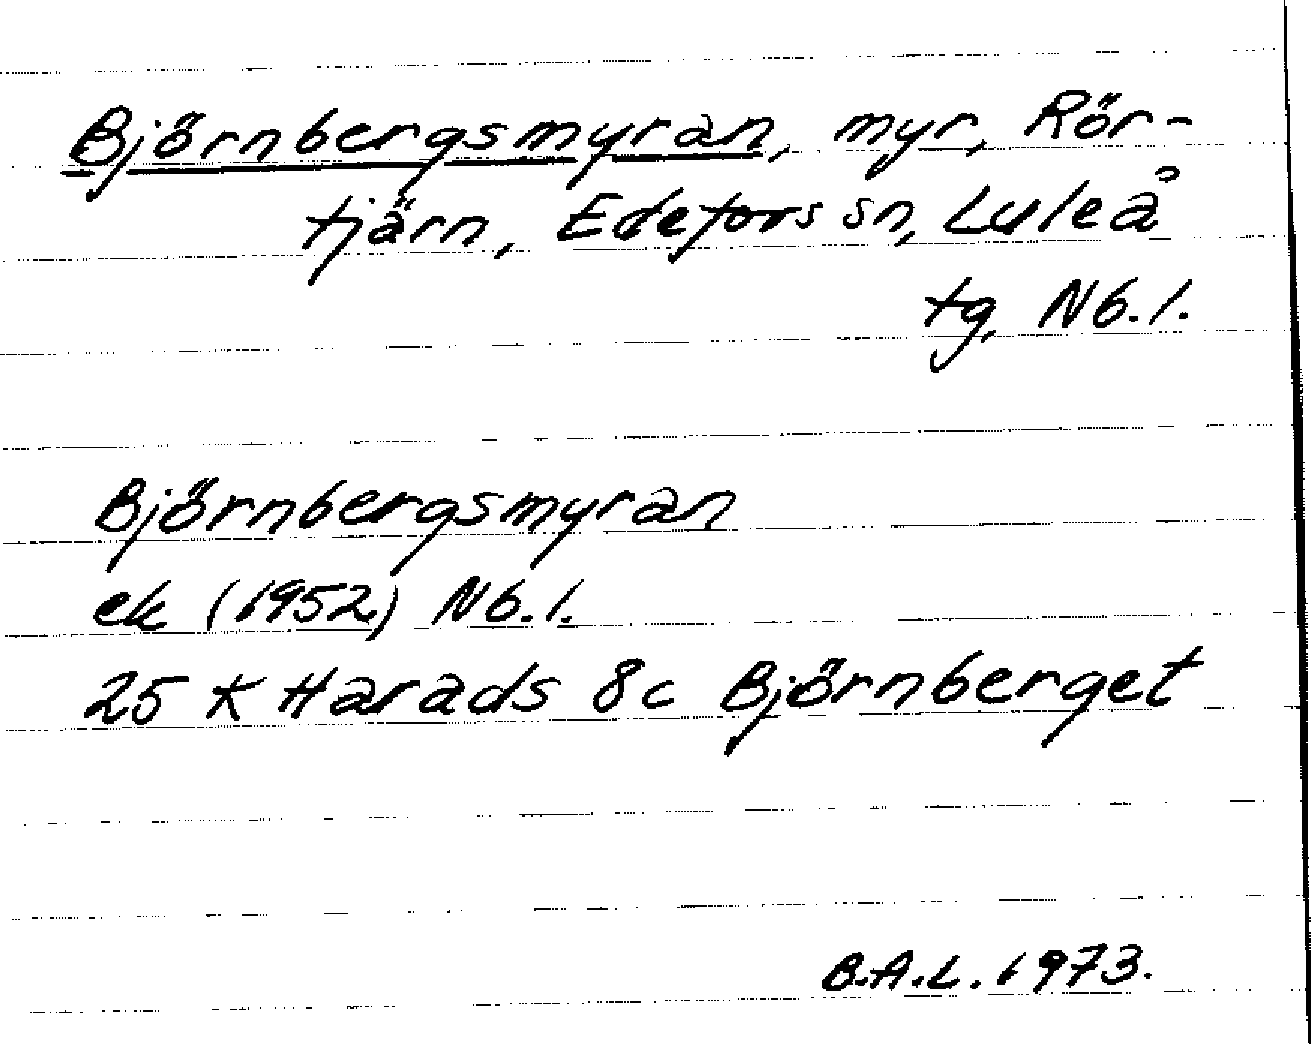 Björnbergsmyran, myr, Rör-
tjärn, Edefors sn, Luleå
tg, Nb.l.
Björnbergsmyran
ek (1952) Nb.l.
25 K Harads 8c Björnberget
B.A.L. 1973.